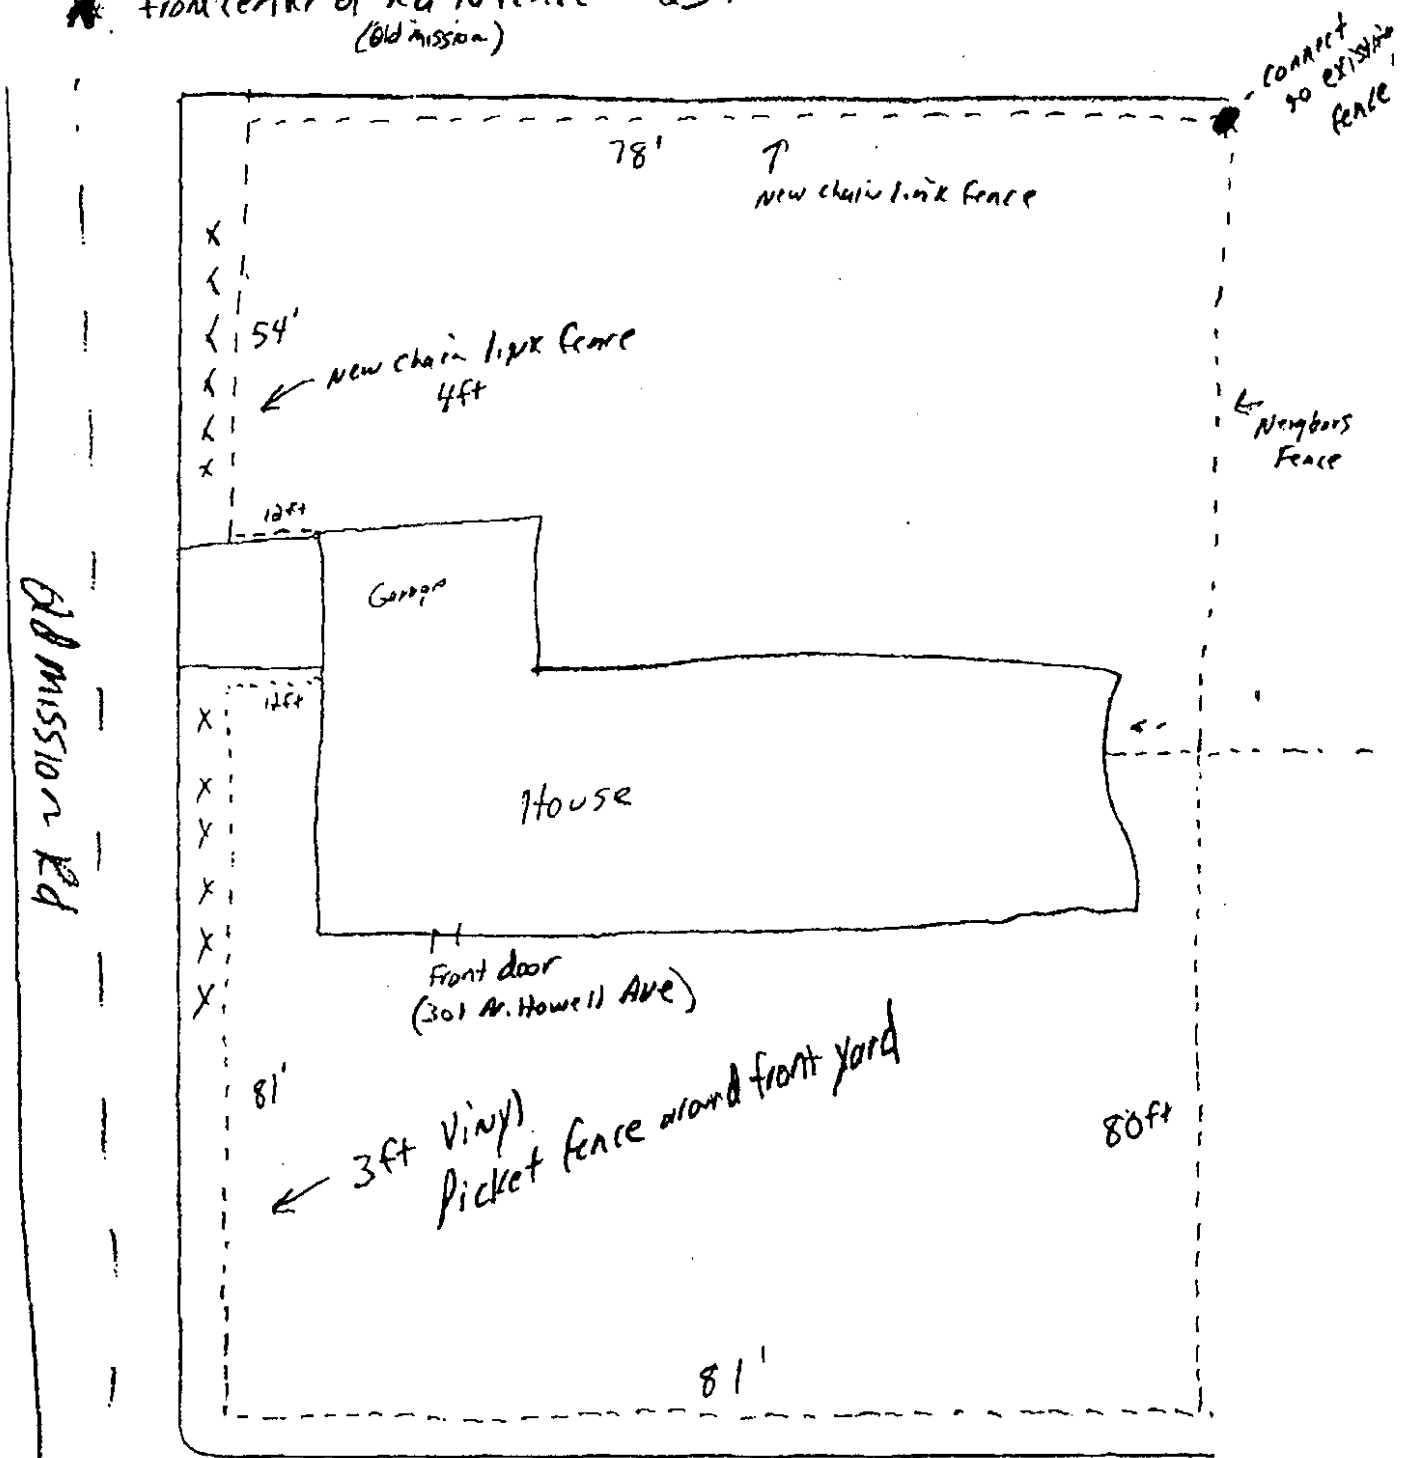 from center of Rd to fence
(Old mission)
connect
to existing
fence
78'
New chain link fence
54'
New chain link fence
4ft
Neighbors
Fence
12ft
Garage
12ft
House
Old mission Rd
Front door
(301 N. Howell Ave)
81'
3ft Vinyl
Picket fence around front yard
80ft
81'